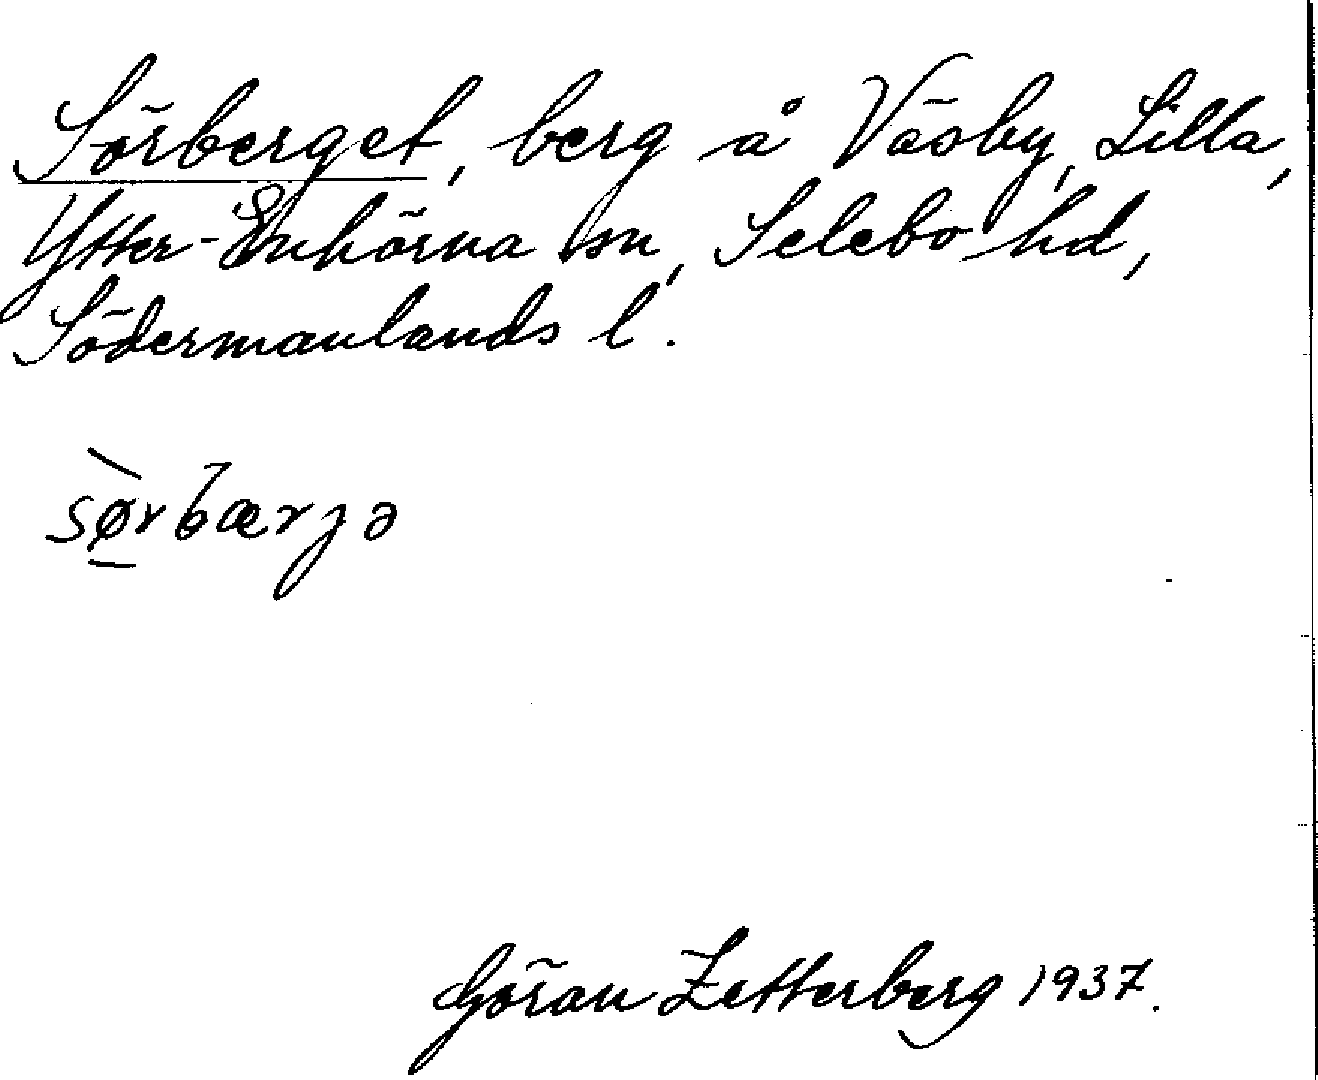 Sörberget, berg å Väsby, Lilla,
Ytter-Enhörna sn, Selebo hd,
Södermanlands l.
sø̠̀rbærjə
Göran Zetterberg 1937.